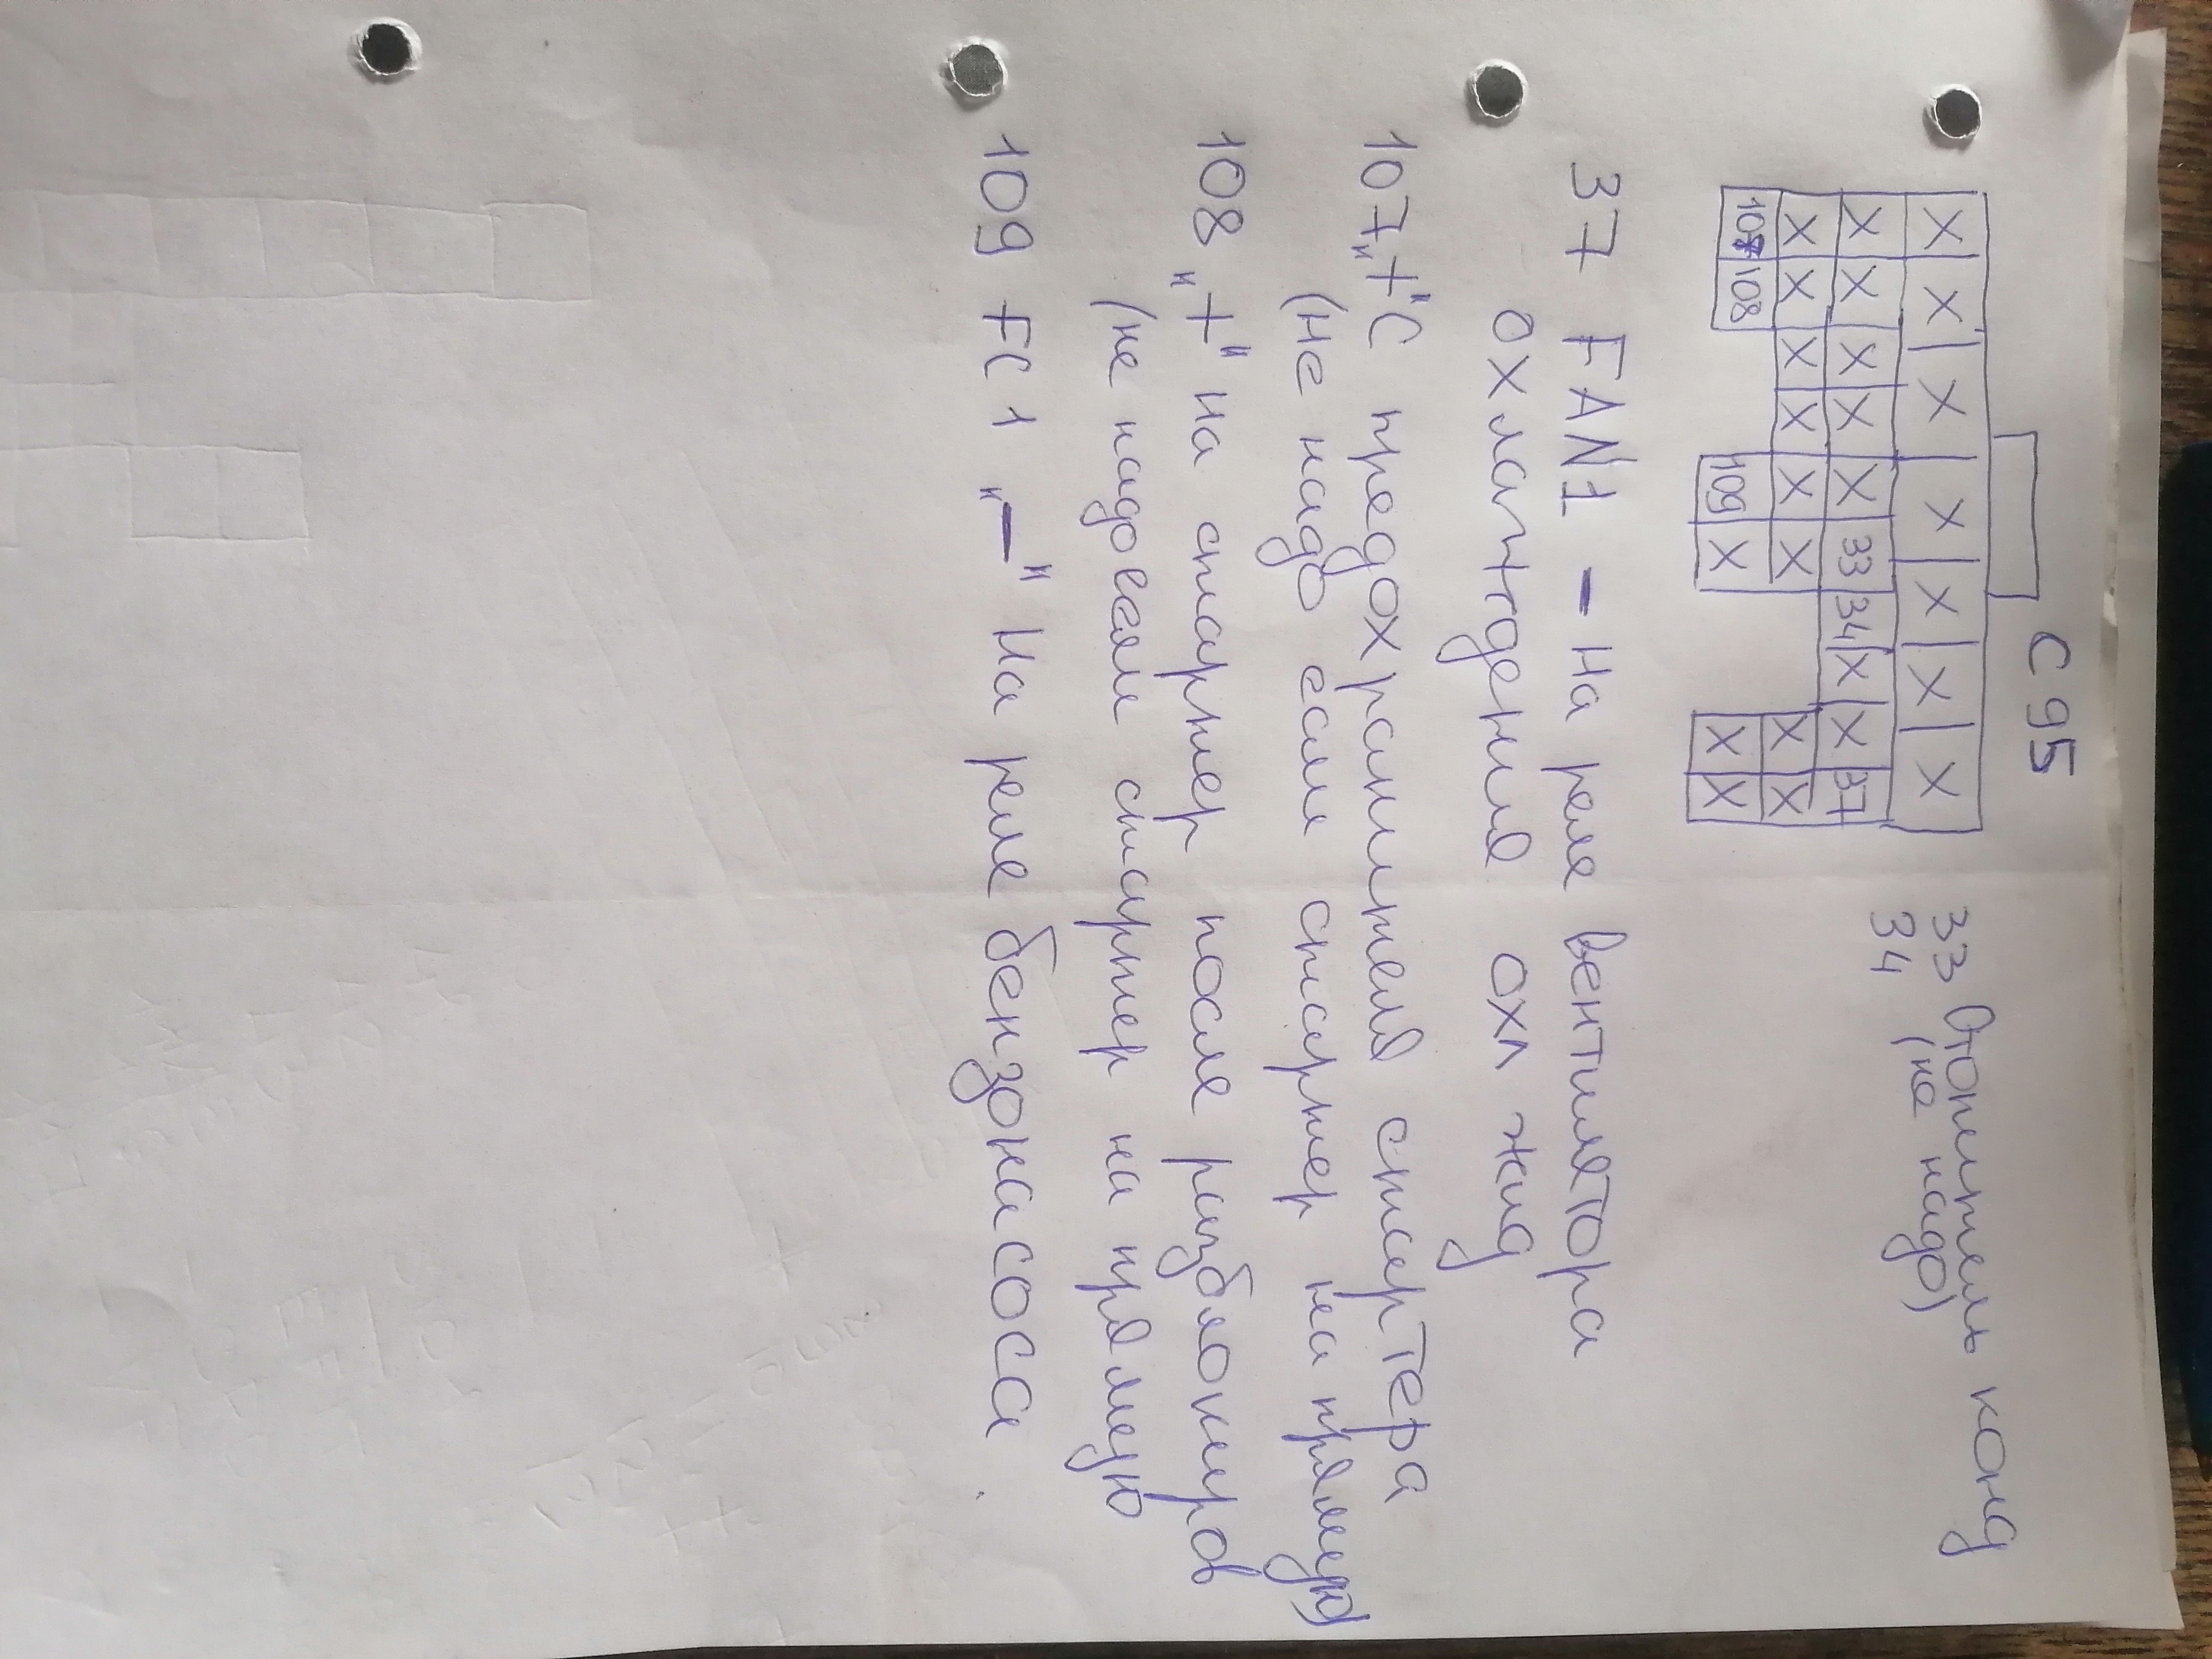 C 95
X X X X X X X
X X X X X 33 34 X X 37
X X X X X X X X
107 108 109 X X X
33 Отопитель конд
34 (не надо)
37 FAN1 – на реле вентилятора
охлаждения охл жид
107 „+" С предохранителя стартера
(не надо если стартер на прямую)
108 „+" на стартер после разблокиров
(не надо если стартер на прямую
109 FC 1 „–" На реле бензонасоса